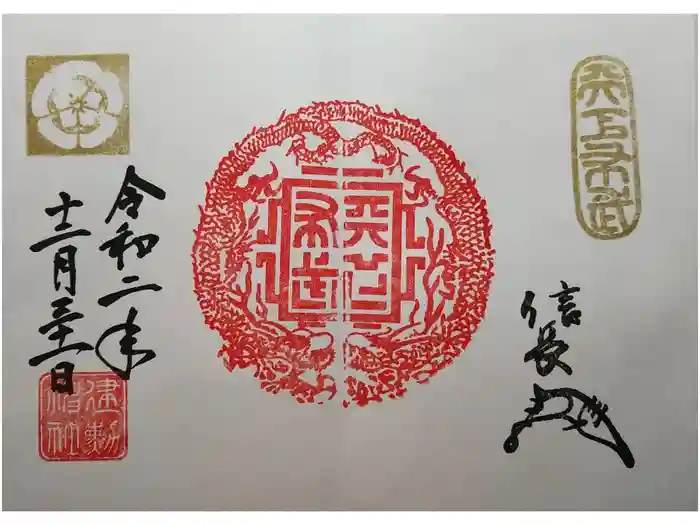 天下布武
信長
天下布武
令和二年
十二月三十一日
建勲神社